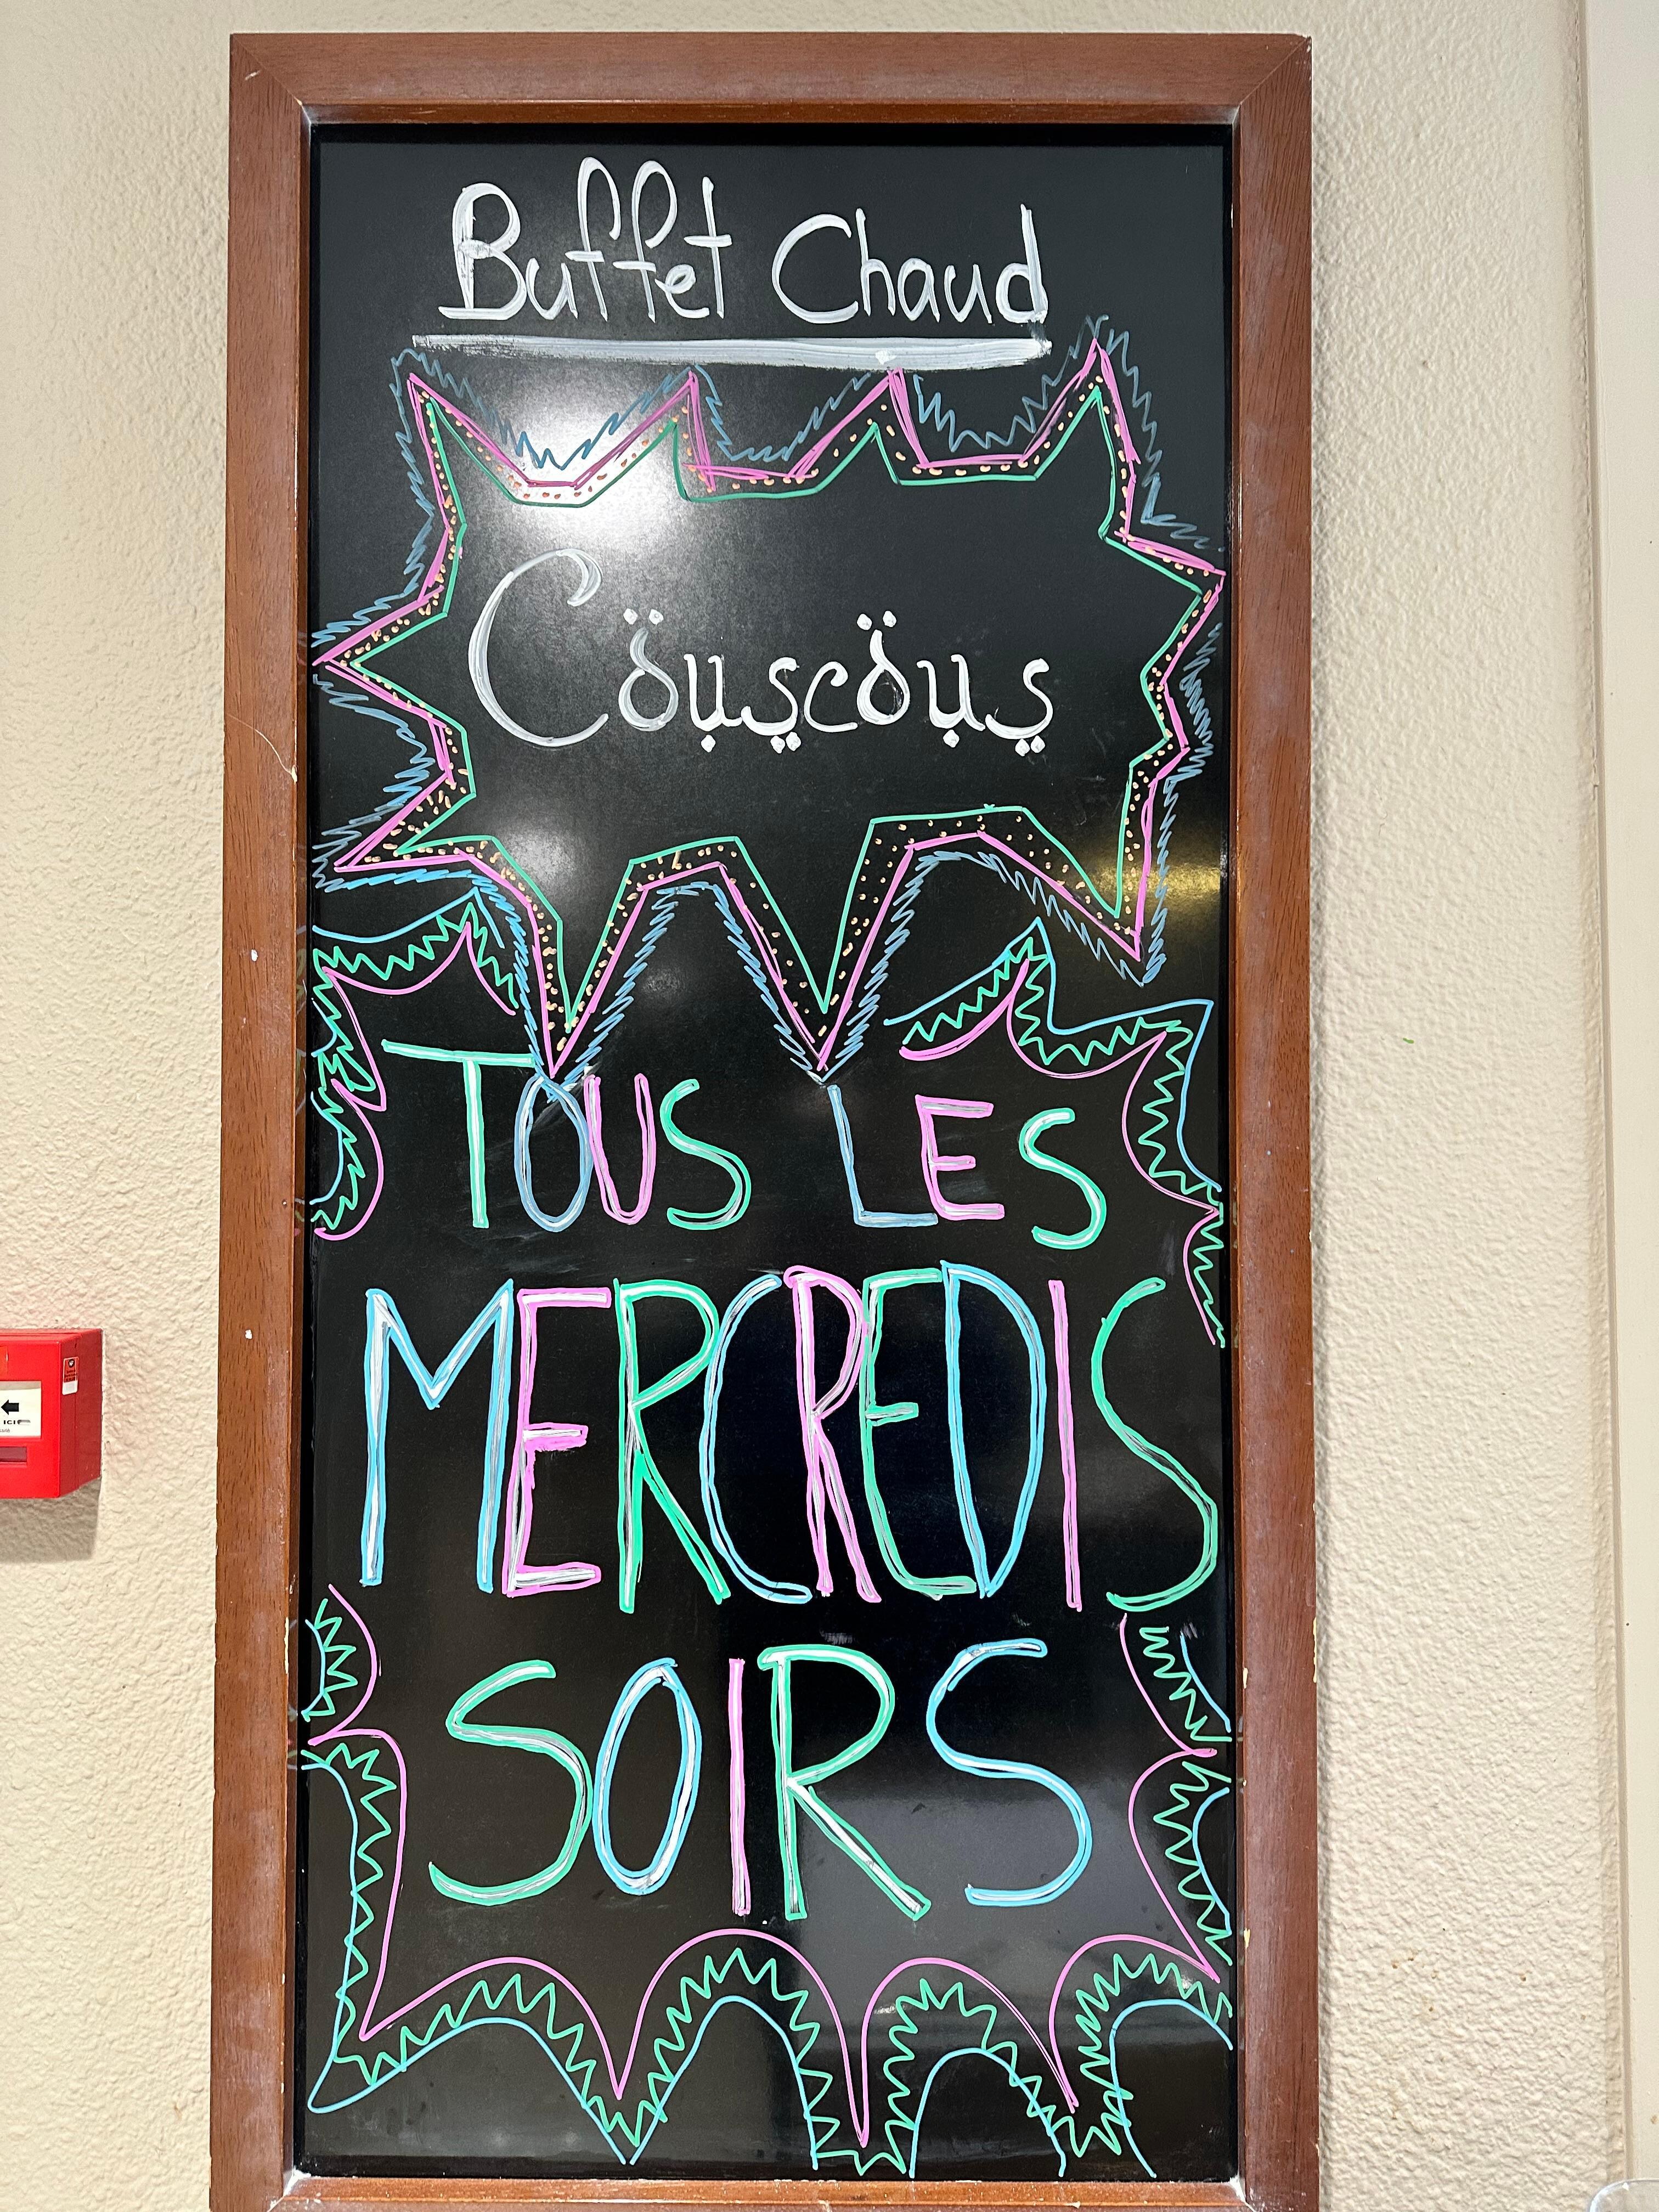 Buffet Chaud
Couscous
TOUS LES
MERCREDIS
SOIRS
ICI